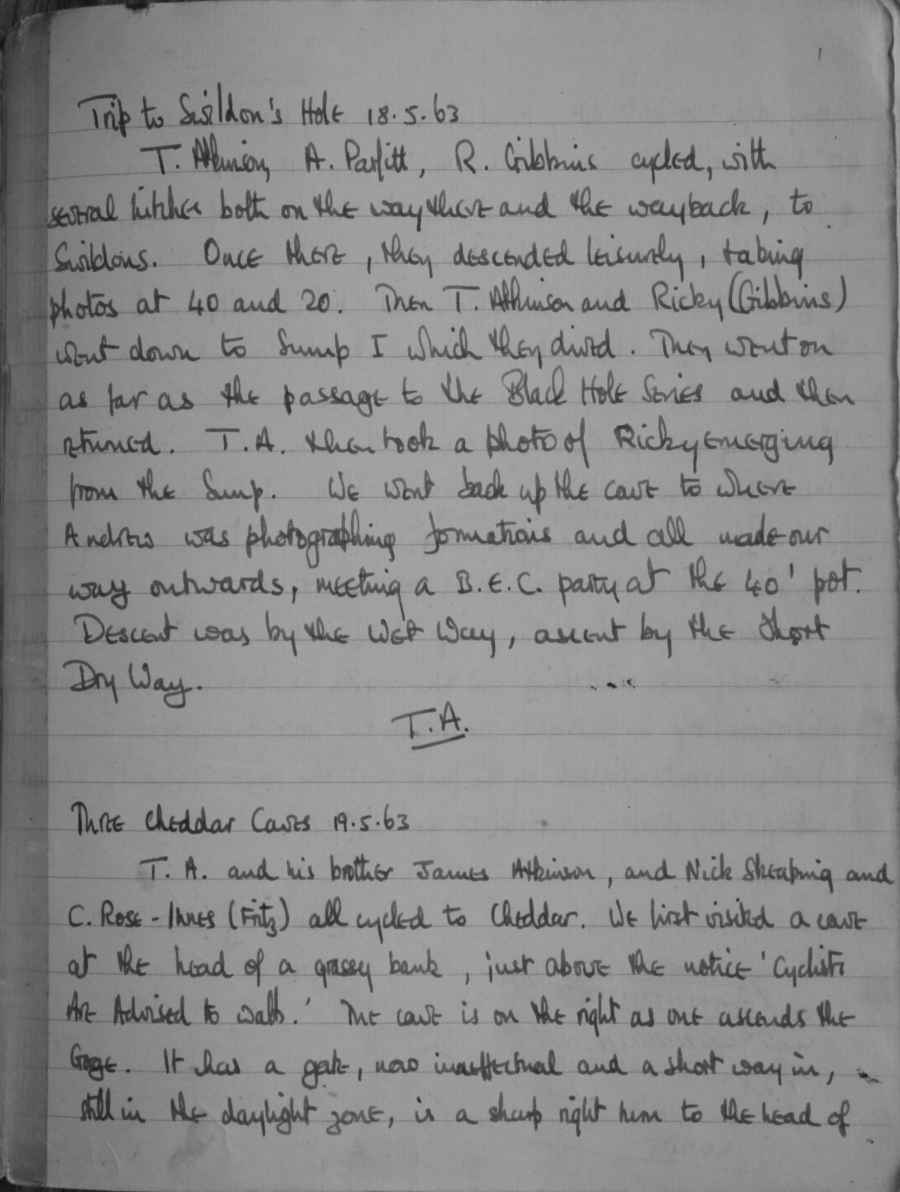 1
Trip to Swildon's Hole 18.5.63
T. Atkinson, A. Parfitt, R. Gibbins cycled, with
several hitches both on the way there and the way back, to
Swildons. Once there, they descended leisurely, taking
photos at 40 and 20. Then T. Atkinson and Ricky (Gibbins)
went down to Sump I which they dived. They went on
as far as the passage to the Black Hole Series and then
returned. T.A. then took a photo of Ricky emerging
from the Sump. We went back up the cave to where
Andrew was photographing formations and all made our
way outwards, meeting a B.E.C. party at the 40' pot.
Descent was by the Wet Way, ascent by the Short
Dry Way.
T.A.
Three Cheddar Caves 19.5.63
T. A. and his brother James Atkinson, and Nick and
C. Rose-Innes (Fritz) all cycled to Cheddar. We first visited a cave
at the head of a grassy bank, just above the notice 'Cyclists
Are Advised to walk.' The cave is on the right as one ascends the
Gorge. It has a gate, now inaffectual and a short way in,
still in the daylight zone, is a sharp right turn to the head of